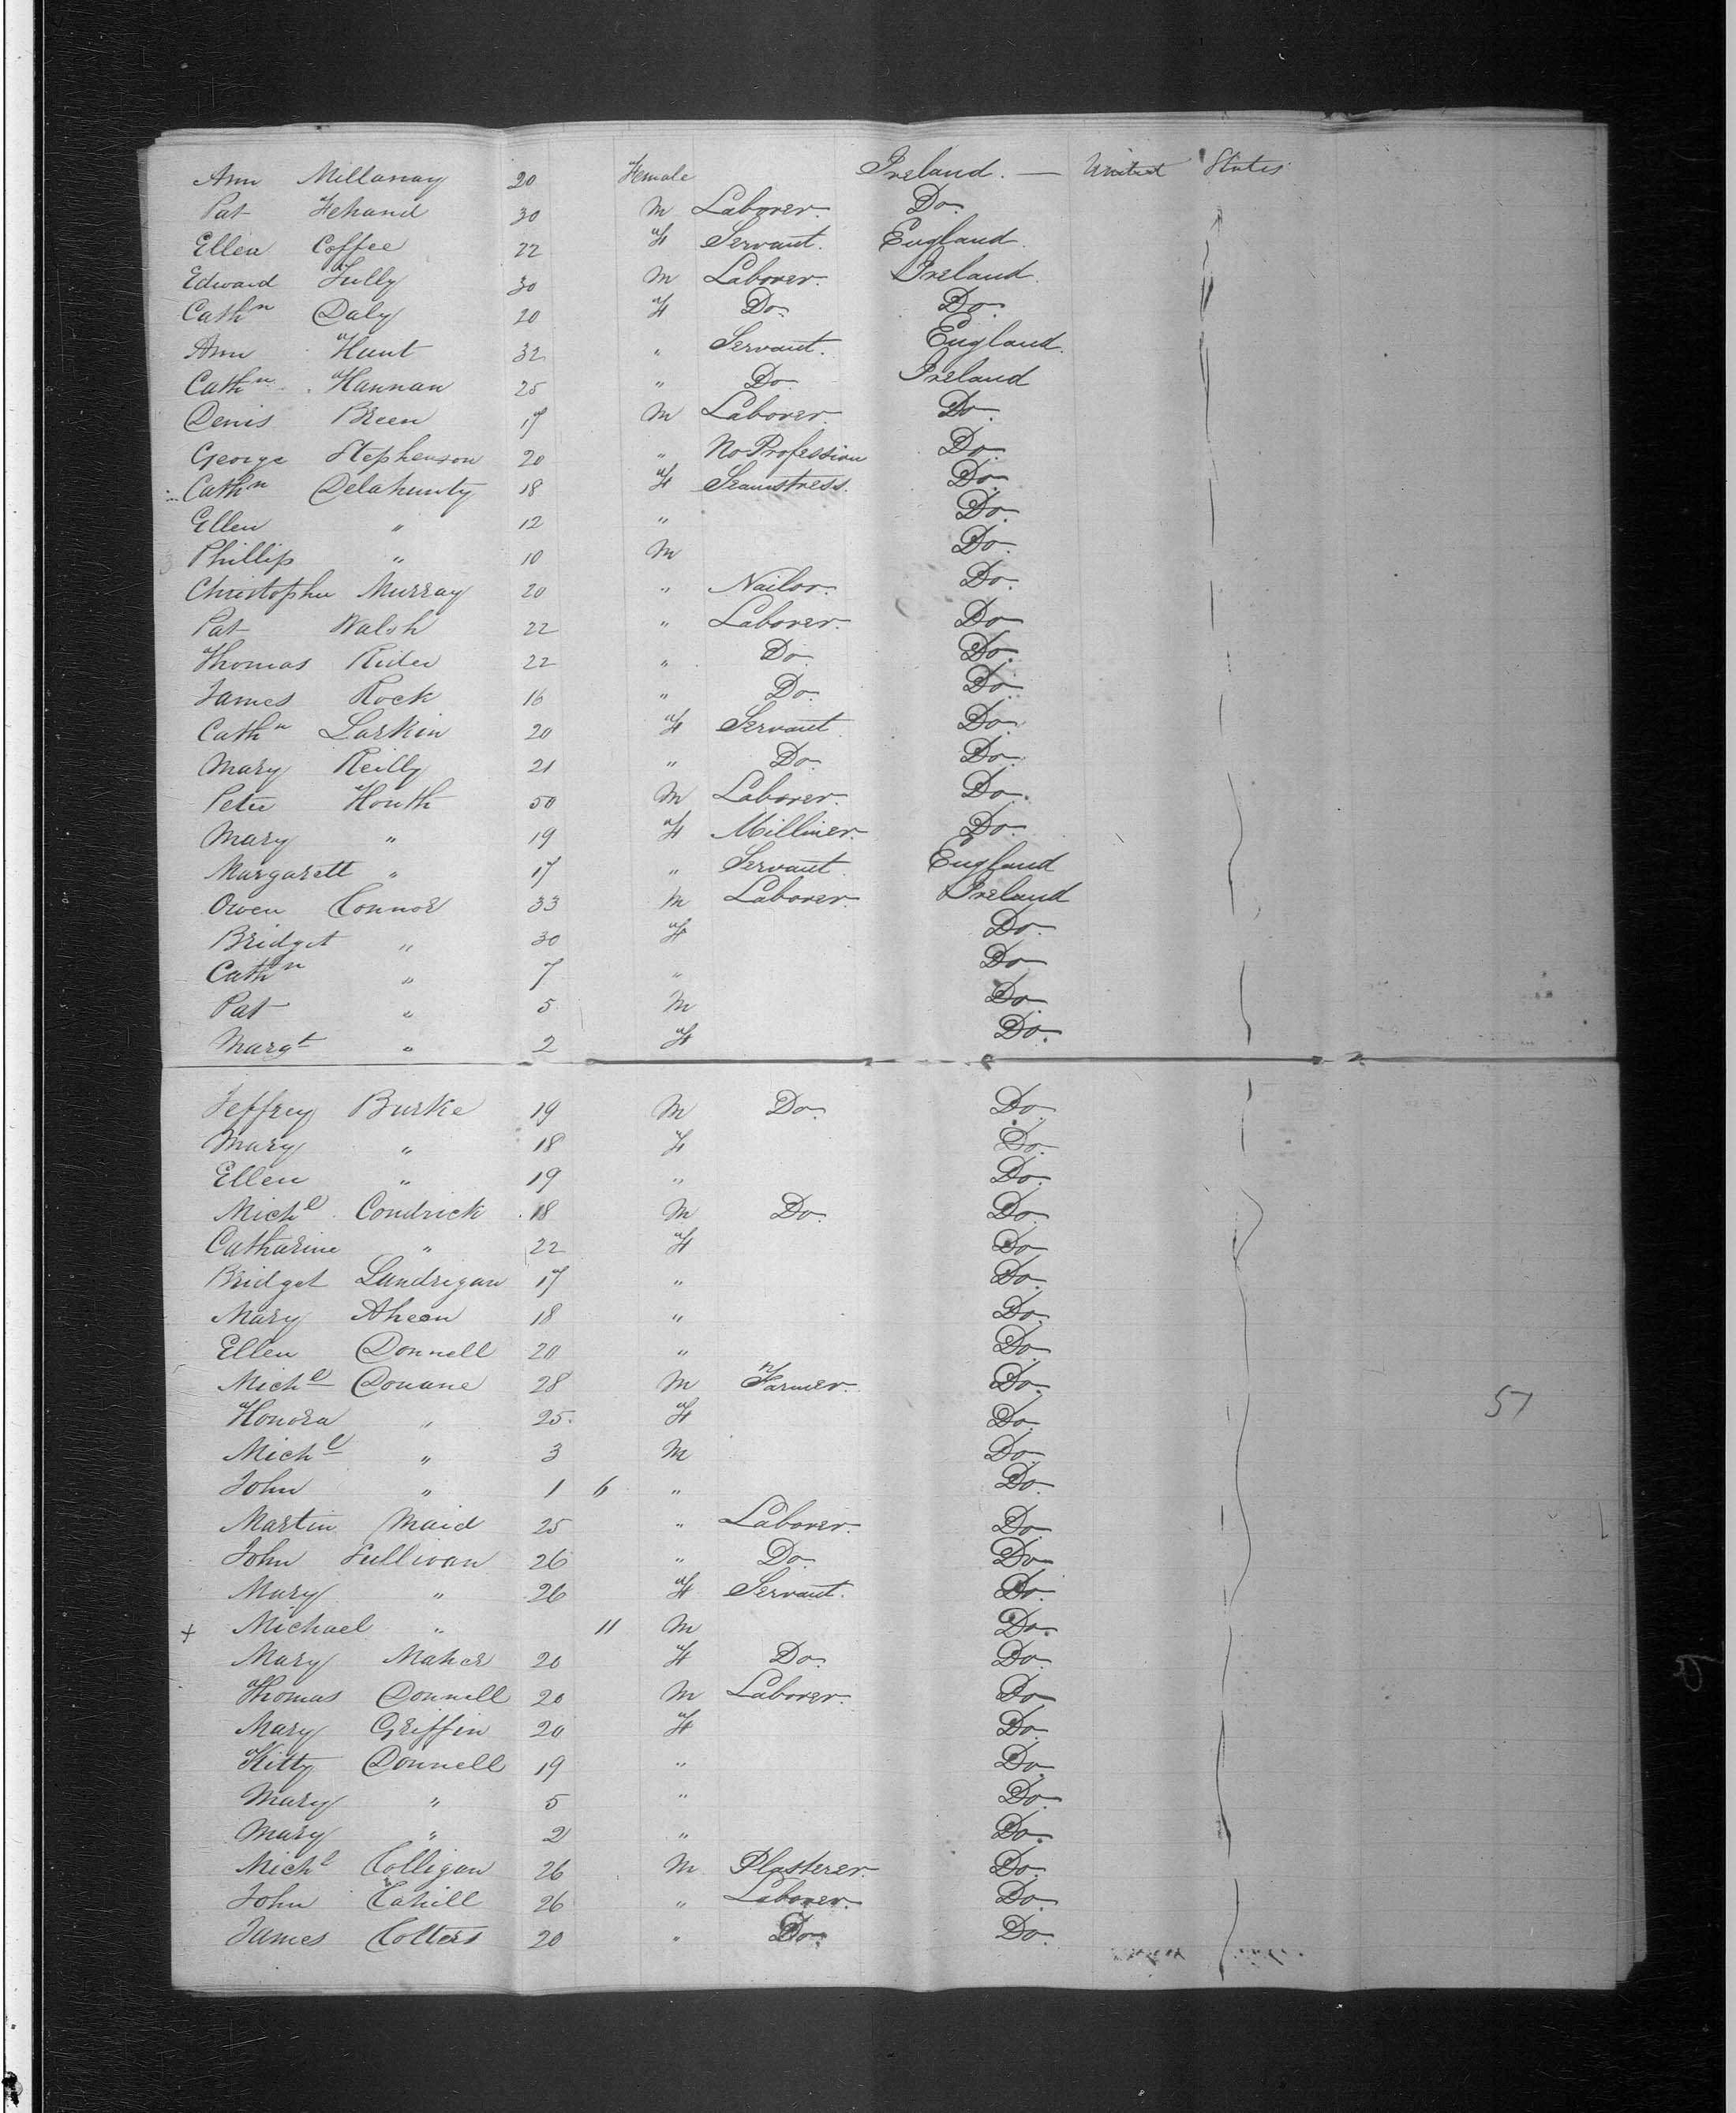 Ann Millanay 20 Female Ireland. — United States
Pat Fehand 30 M Laborer. Do.
Ellen Coffee 22 F Servant. England.
Edward Tully 30 M Laborer. Ireland.
Cathn Daly 20 F Do. Do.
Ann Hunt 32 " Servant. England.
Cathn Hannan 25 " Do Ireland
Denis Breen 17 M Laborer. Do.
George Stephenson 20 " No Profession Do.
Cathn Delahunty 18 F Seamstress. Do.
Ellen " 12 " Do.
Phillip " 10 M Do.
Christopher Murray 20 " Nailor. Do.
Pat Walsh 22 " Laborer. Do
Thomas Rider 22 " Do. Do.
James Rock 16 " Do. Do.
Cathn Larkin 20 F Servant. Do.
Mary Reilly 21 " Do. Do.
Peter Houth 50 M Laborer. Do.
Mary " 19 F Milliner. Do.
Margarett " 17 " Servant. England
Owen Connor 33 M Laborer. Ireland
Bridget " 30 F Do.
Cathn " 7 " Do
Pat " 5 M Do
Margt " 2 F Do.
Jeffrey Burke 19 M Do. Do.
Mary " 18 F Do.
Ellen " 19 " Do.
Michl Condrick 18 M Do. Do.
Catharine " 22 F Do
Bridget Landrigan 17 " Do.
Mary Ahern 18 " Do.
Ellen Donnell 20 " Do.
Michl Douane 28 M Farmer. Do.
Honora " 25. F Do
Michl " 3 M Do.
John " 1 6 " Do.
Martin Maid 25 " Laborer. Do.
John Sullivan 26 " Do. Do
Mary " 26 F Servant. Do.
+ Michael " 11 M Do.
Mary Maher 20 F Do. Do.
Thomas Donnell 20 M Laborer. Do
Mary Griffin 20 F Do.
Kitty Donnell 19 " Do.
Mary " 5 " Do.
Mary " 2 " Do.
Michl Colligan 26 M Plasterer. Do.
John Cahill 26 " Laborer. Do.
James Cotters 20 " Do. Do.
51